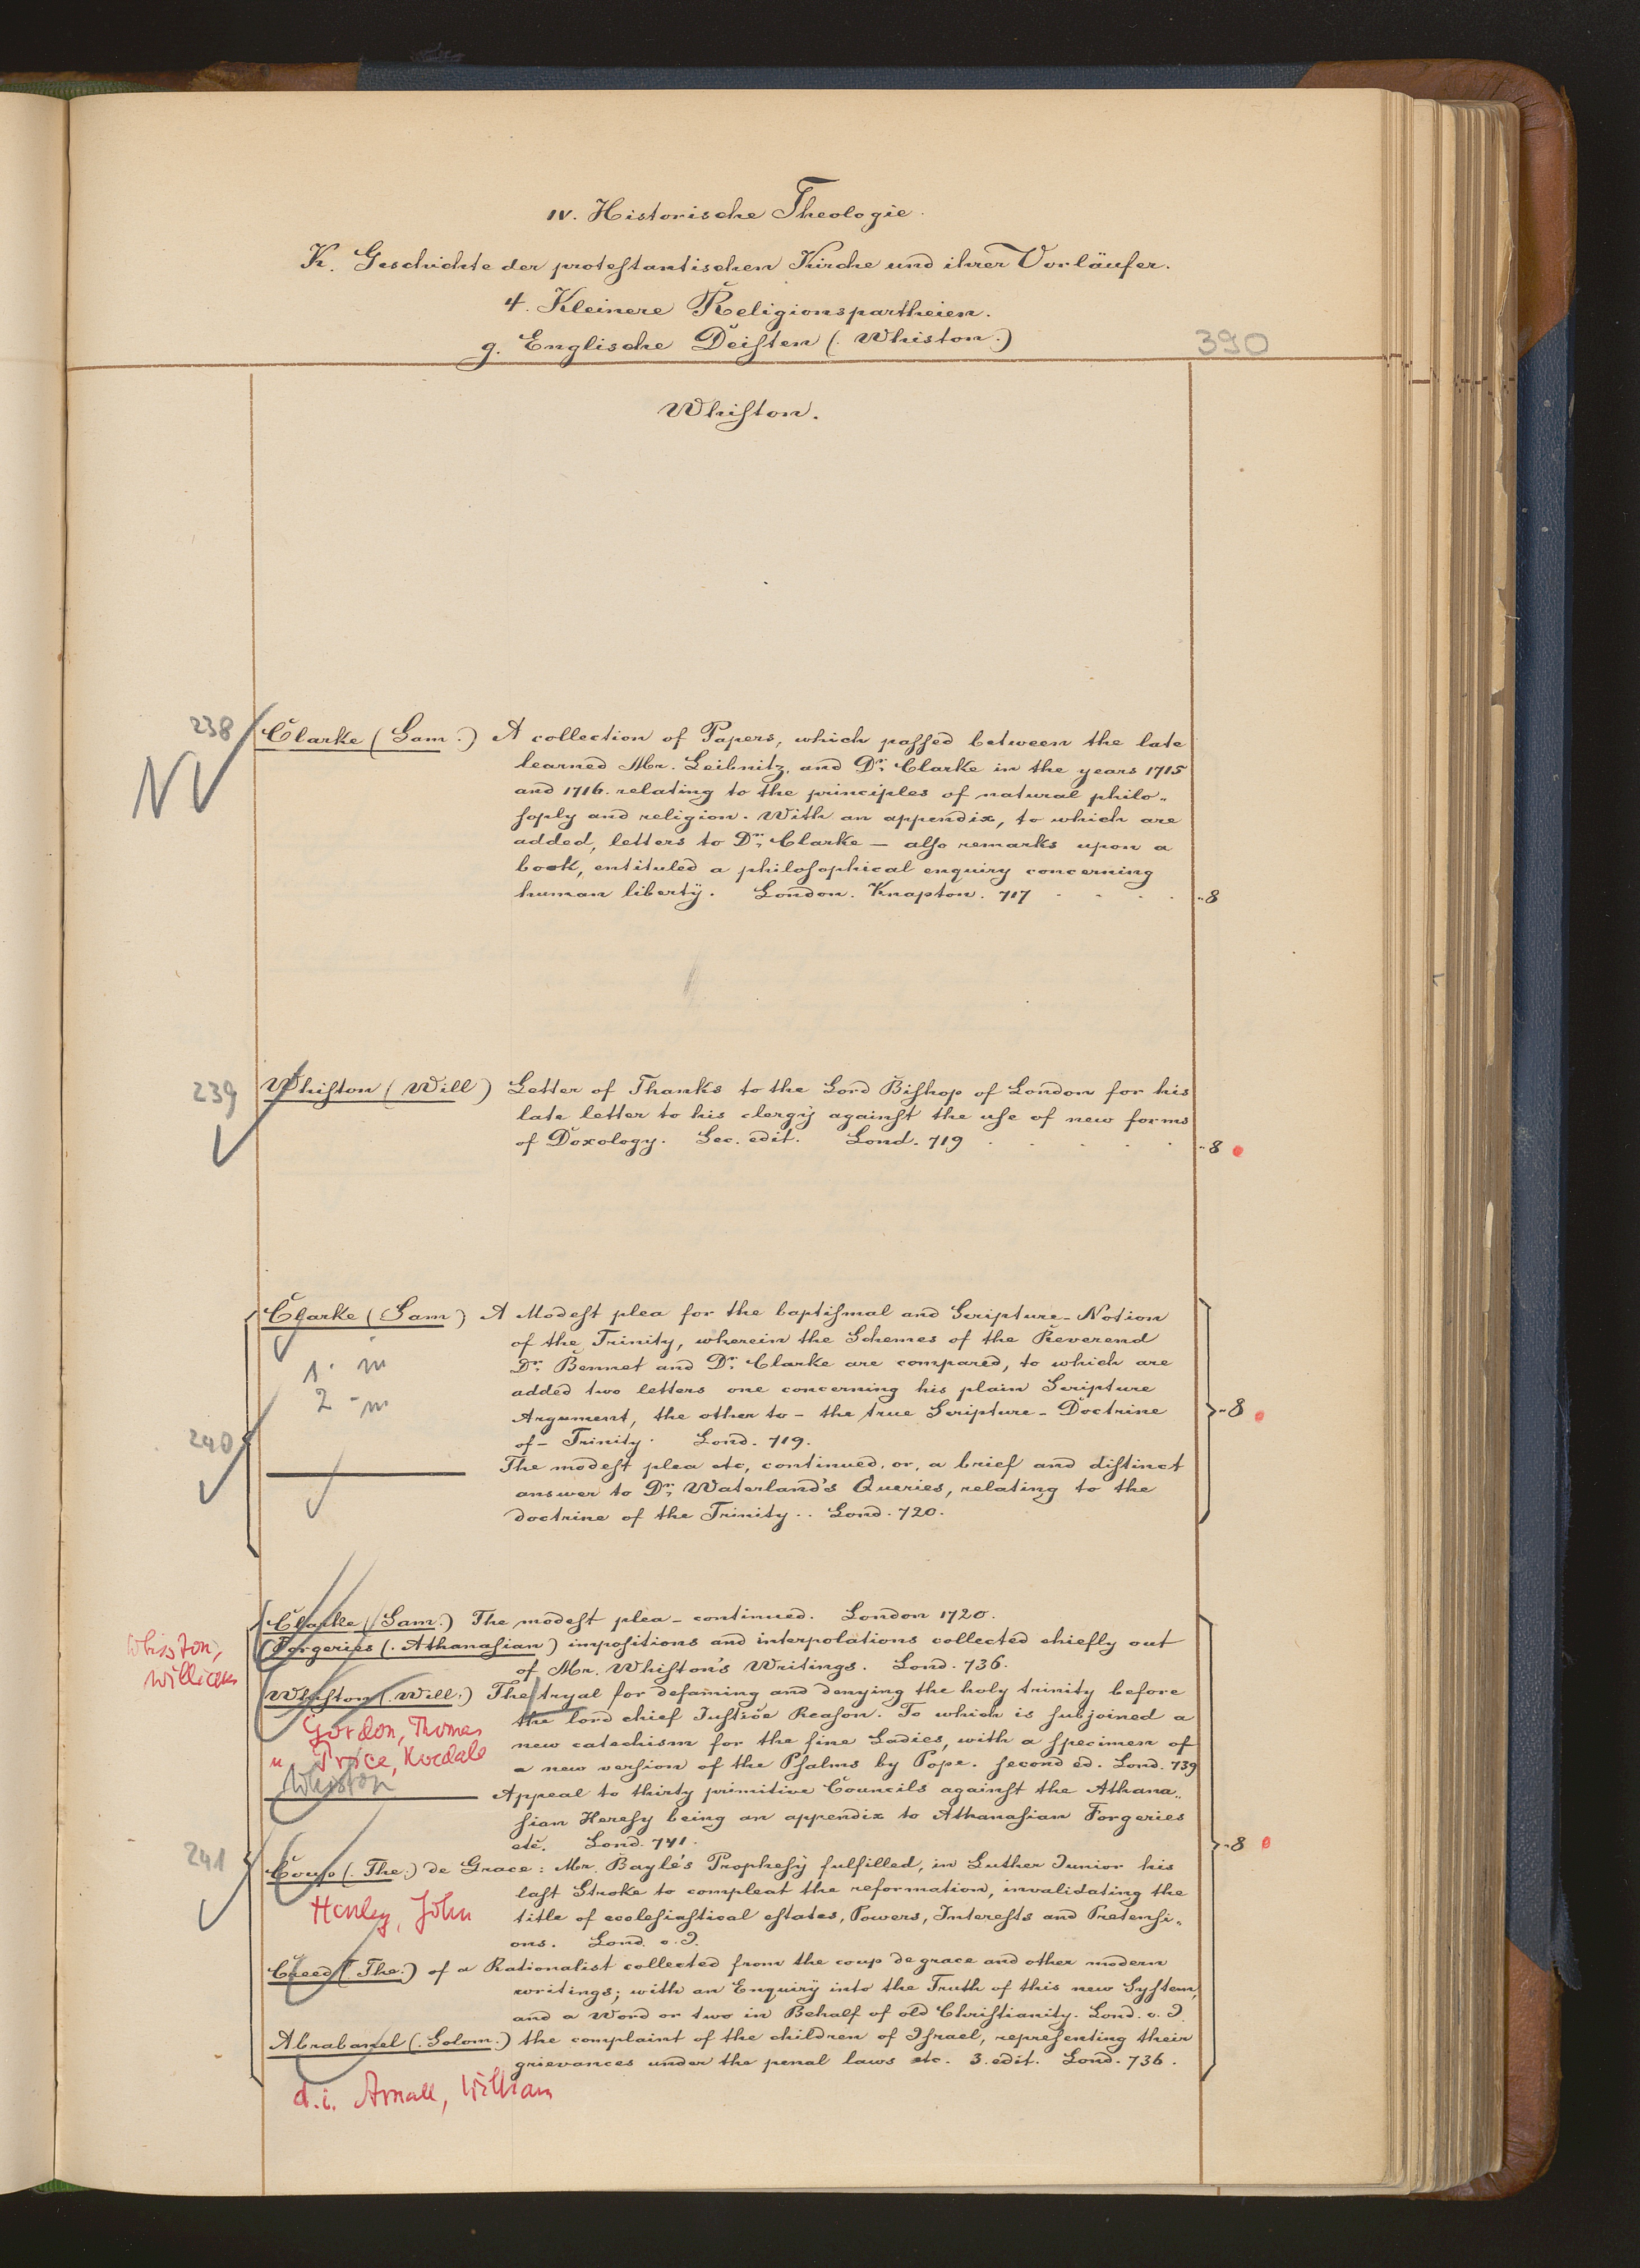 IV. Historische Theologie.
K. Geschichte der protestantischen Kirche und ihrer Vorläufer.
4. Kleinere Religionspartheien.
g. Englische Deisten (: Whiston.)
390
Whiston.
238
Clarke (Sam.) A collection of Papers, which passed between the late
learned Mr. Leibnitz, and Dr. Clarke in the years 1715
and 1716. relating to the principles of natural philo„
soply and religion. With an appendix, to which are
added, letters to Dr. Clarke — also remarks upon a
book, entituled a philosophical enquiry concerning
human libertÿ. London. Knapton. 717 . . . . „8
239
Whiston (Will) Letter of Thanks to the Lord Bishop of London for his
late letter to his clergÿ against the use of new forms
of Doxology. Sec. edit. Lond. 719 . . . . „8
Clarke (Sam) A Modest plea for the baptismal and Scripture-Notion
of the Trinity, wherein the Schemes of the Reverend
Dr. Bennet and Dr. Clarke are compared, to which are
1. m
added two letters one concerning his plain Scripture
2 - m
Argument, the other to - the true Scripture-Doctrine
„8
240
of - Trinity. Lond. 719.
——— The modest plea etc, continued, or, a brief and distinct
answer to Dr. Waterland's Queries, relating to the
doctrine of the Trinity.. Lond. 720.
Clarke (Sam.) The modest plea - continued. London 1720.
Whiston, William
Forgeries (. Athanasian) impositions and interpolations collected chiefly out
of Mr. Whiston's Writings. Lond. 736.
Whiston (. Will.) The tryal for defaming and denying the holy trinity before
the lord chief Justice Reason. To which is subjoined a
Gordon, Thomas
new catechism for the fine Ladies, with a specimen of
u. Price, Kordale
a new version of the Psalms by Pope. second ed. Lond. 739
Whiston
——— Appeal to thirty primitive Councils against the Athana„
sian Heresy being an appendix to Athanasian Forgeries
etc. Lond. 741.
„8
241
Coup (. The.) de Grace: Mr. Bayle's Prophesÿ fulfilled, in Luther Junior his
last Stroke to compleat the reformation, invalidating the
Henley, John
title of ecclesiastical estates, Powers, Interests and Pretensi„
ons. Lond. o. J.
Creed (. The.) of a Rationalist collected from the coup de grace and other modern
writings; with an Enquirÿ into the Truth of this new System,
and a Word or two in Behalf of old Christianity. Lond. o. J.
Abrabanel (. Solom.) the complaint of the children of Israel, representing their
grievances under the penal laws etc. 3. edit. Lond. 736.
d. i. Arnall, William